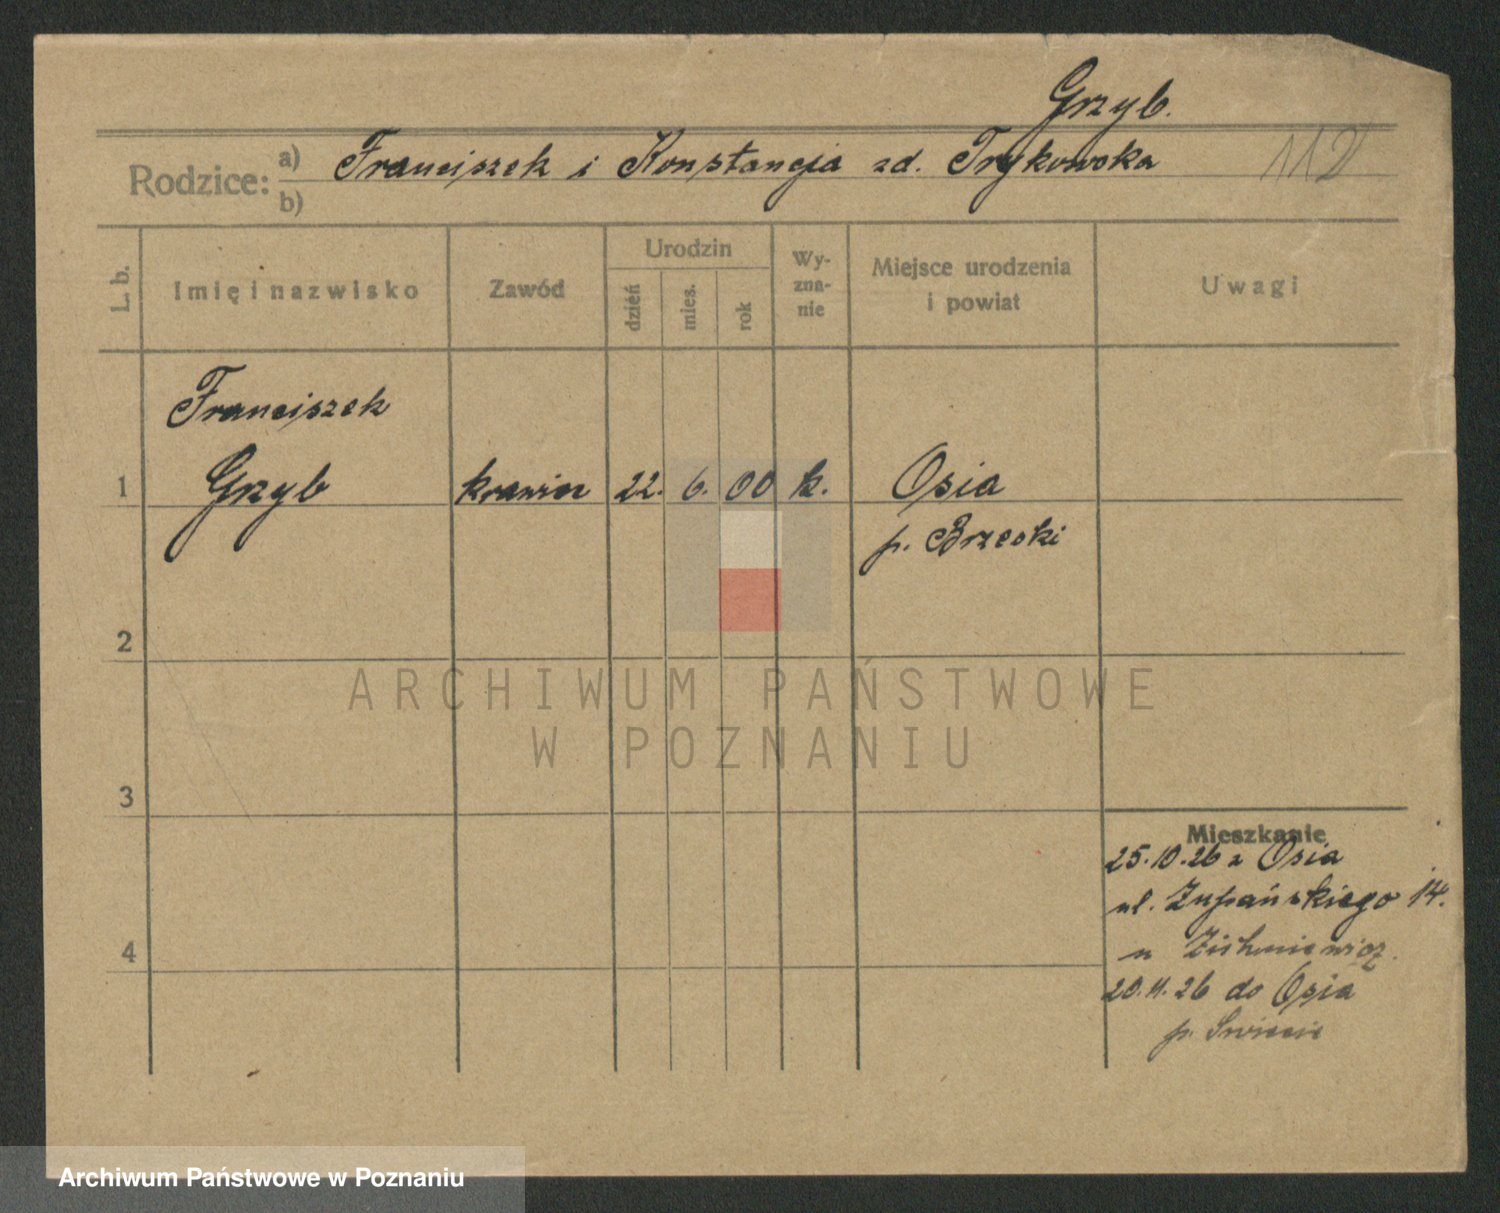 Grzyb.
Rodzice: a) Franciszek i Konstancja zd. Trykowska 112
b)
L. b. Imię i nazwisko Zawód Urodzin dzień mies. rok Wyznanie Miejsce urodzenia i powiat Uwagi
Franciszek
1 Grzyb krawiec 22. 6. 00 k. Osia
p. Brzeski
2
ARCHIWUM PAŃSTWOWE
W POZNANIU
3
Mieszkanie
25.10.26 z Osia
ul. Żupańskiego 14.
u
4
20.11.26 do Osia
p. Świecie
Archiwum Państwowe w Poznaniu